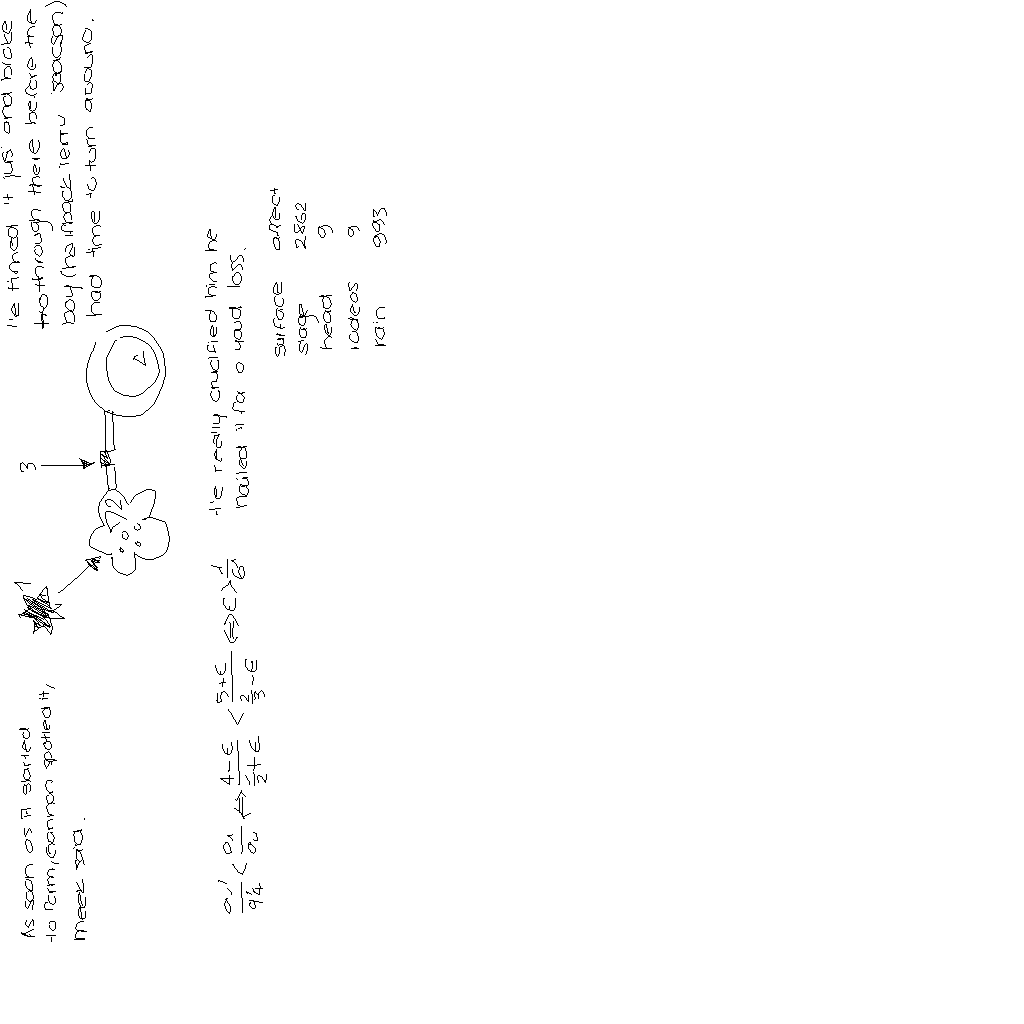 As soon as it started
to form, Cannon spotted it,
Meek said.
1
2
3
He timed it just and broke
through there before the
boy (halfback Terry Isaacson)
had time to turn around.
4-ε / 1/2+ε < 5+ε / 2/3-ε ⇔ ε > 1/6
He really crucified him he
nailed it for a yard loss.
surface affect
stage 2862
head 9
rodeos 9
rain 993